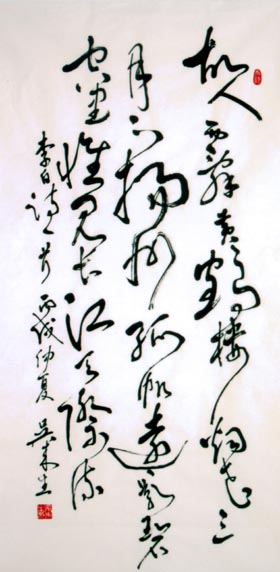 故人西辞黄鹤楼烟花三
月下扬州孤帆远影碧
空尽惟见长江天际流
李白诗一首 丙戌仲夏 吴来生